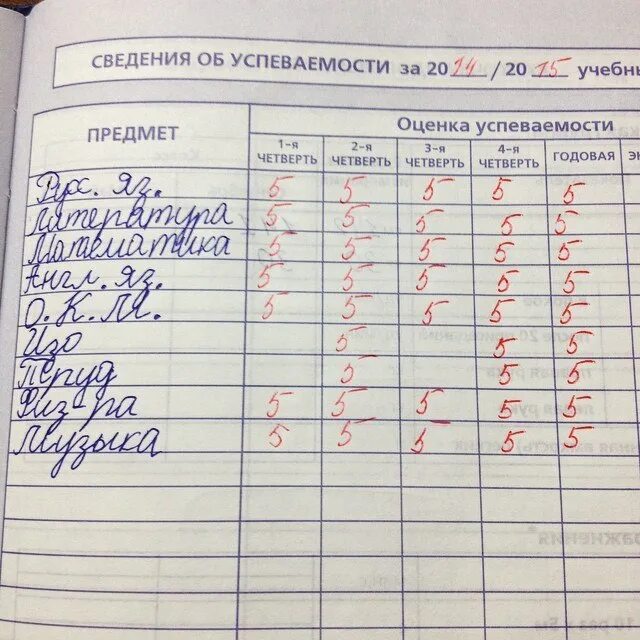 СВЕДЕНИЯ ОБ УСПЕВАЕМОСТИ за 2014/2015 учебны
ПРЕДМЕТ
Оценка успеваемости
1-я ЧЕТВЕРТЬ 2-я ЧЕТВЕРТЬ 3-я ЧЕТВЕРТЬ 4-я ЧЕТВЕРТЬ ГОДОВАЯ
Рус. яз. 5 5 5 5 5
Литература 5 5 5 5 5
Математика 5 5 5 5 5
Англ. яз. 5 5 5 5 5
О.К.М. 5 5 5 5 5
Изо 5 5 5
Труд 5 5 5
Физ-ра 5 5 5 5 5
Музыка 5 5 5 5 5